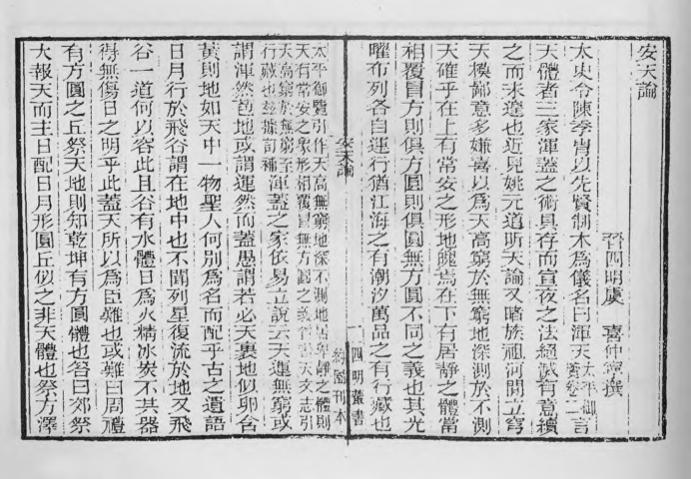 安天論
晉四明虞　喜仲寧撰
太史令陳季胄以先賢制木為儀名曰渾天太平御覽卷二言
天體者三家渾蓋之術具存而宣夜之法絕滅有意續
之而未遑也近見姚元道昕天論又睹族祖河間立穹
天模鄙意多嫌喜以為天高窮於無窮地深測於不測
天確乎在上有常安之形地魄焉在下有居靜之體當
相覆冒方則俱方圓則俱圓無方圓不同之義也其光
曜布列各自運行猶江海之有潮汐萬品之有行藏也
安天論
一
四明叢書
約園刊本
太平御覽引作天高無窮地深不測地居卑靜之體則
天有常安之象形相覆冒無方圓之義晉書天文志引
天高窮於無窮至渾蓋之家依易立說云天運無窮或
行藏也茲據訂補
謂渾然苞地或謂運然而蓋愚謂若必天裹地似卵含
黃則地如天中一物聖人何別為名而配乎古之遺語
日月行於飛谷謂在地中也不聞列星復流於地又飛
谷一道何以容此且谷有水體日為火精冰炭不共器
得無傷日之明乎此蓋天所以為臣難也或難曰周禮
有方圓之丘祭天地則知乾坤有方圓體也答曰郊祭
大報天而主日配日月形圓丘似之非天體也祭方澤